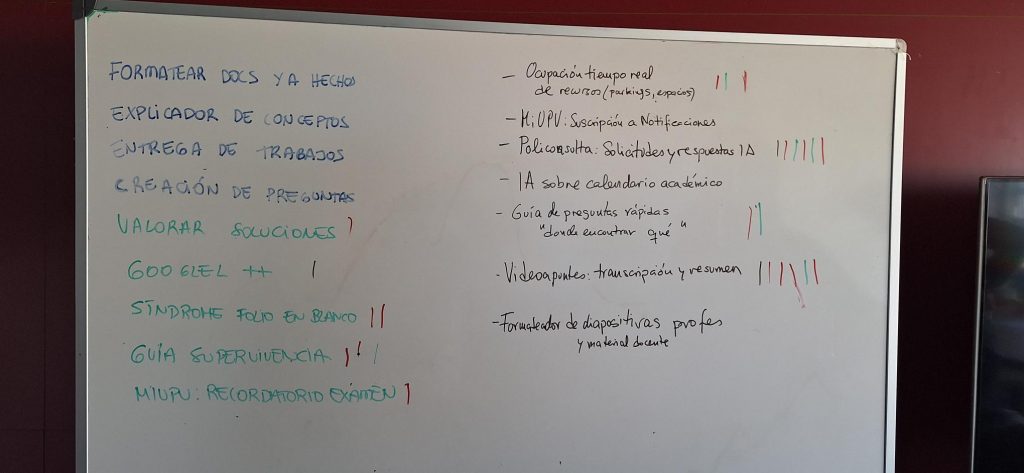 FORMATEAR DOCS YA HECHOS
EXPLICADOR DE CONCEPTOS
ENTREGA DE TRABAJOS
CREACIÓN DE PREGUNTAS
VALORAR SOLUCIONES
GOOGLEL ++
SÍNDROME FOLIO EN BLANCO
GUÍA SUPERVIVENCIA
MIUPV: RECORDATORIO EXÁMEN
- Ocupación tiempo real
de recursos (parkings, espacios)
- MiUPV: Suscripción a Notificaciones
- Policonsulta: Solicitudes y respuestas IA
- IA sobre calendario académico
- Guía de preguntas rápidas
"donde encontrar qué"
- Videoapuntes: transcripción y resumen
- Formateador de diapositivas profes
y material docente